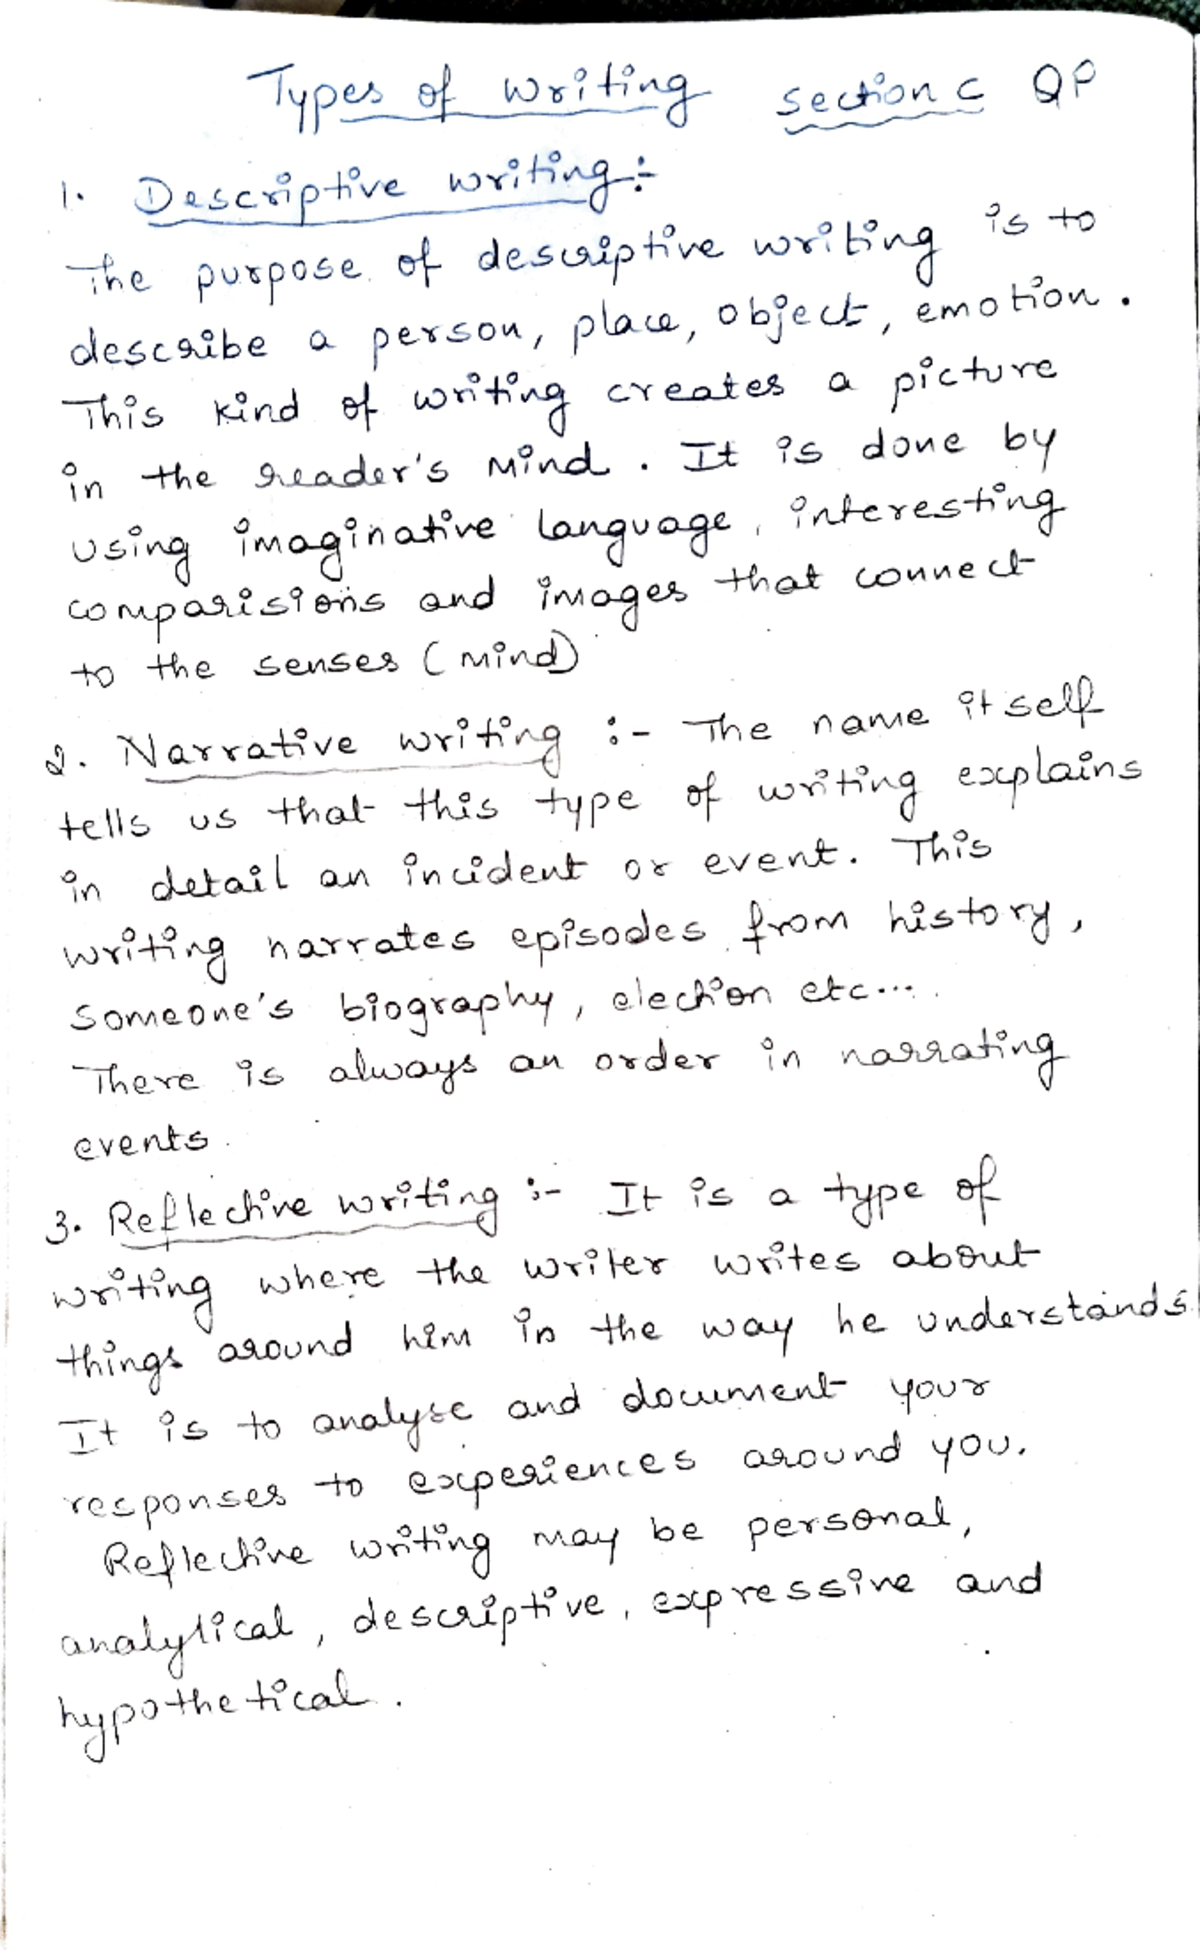 Types of writing section c QP
1. Descriptive writing:-
The purpose of descriptive writing is to
describe a person, place, object, emotion.
This kind of writing creates a picture
in the reader's mind. It is done by
using imaginative language, interesting
comparisions and images that connect
to the senses (mind)
2. Narrative writing :- The name itself
tells us that this type of writing explains
in detail an incident or event. This
writing narrates episodes from history,
someone's biography, election etc....
There is always an order in narrating
events.
3. Reflective writing :- It is a type of
writing where the writer writes about
things around him in the way he understands.
It is to analyse and document your
responses to experiences around you.
Reflective writing may be personal,
analytical, descriptive, expressive and
hypothetical.